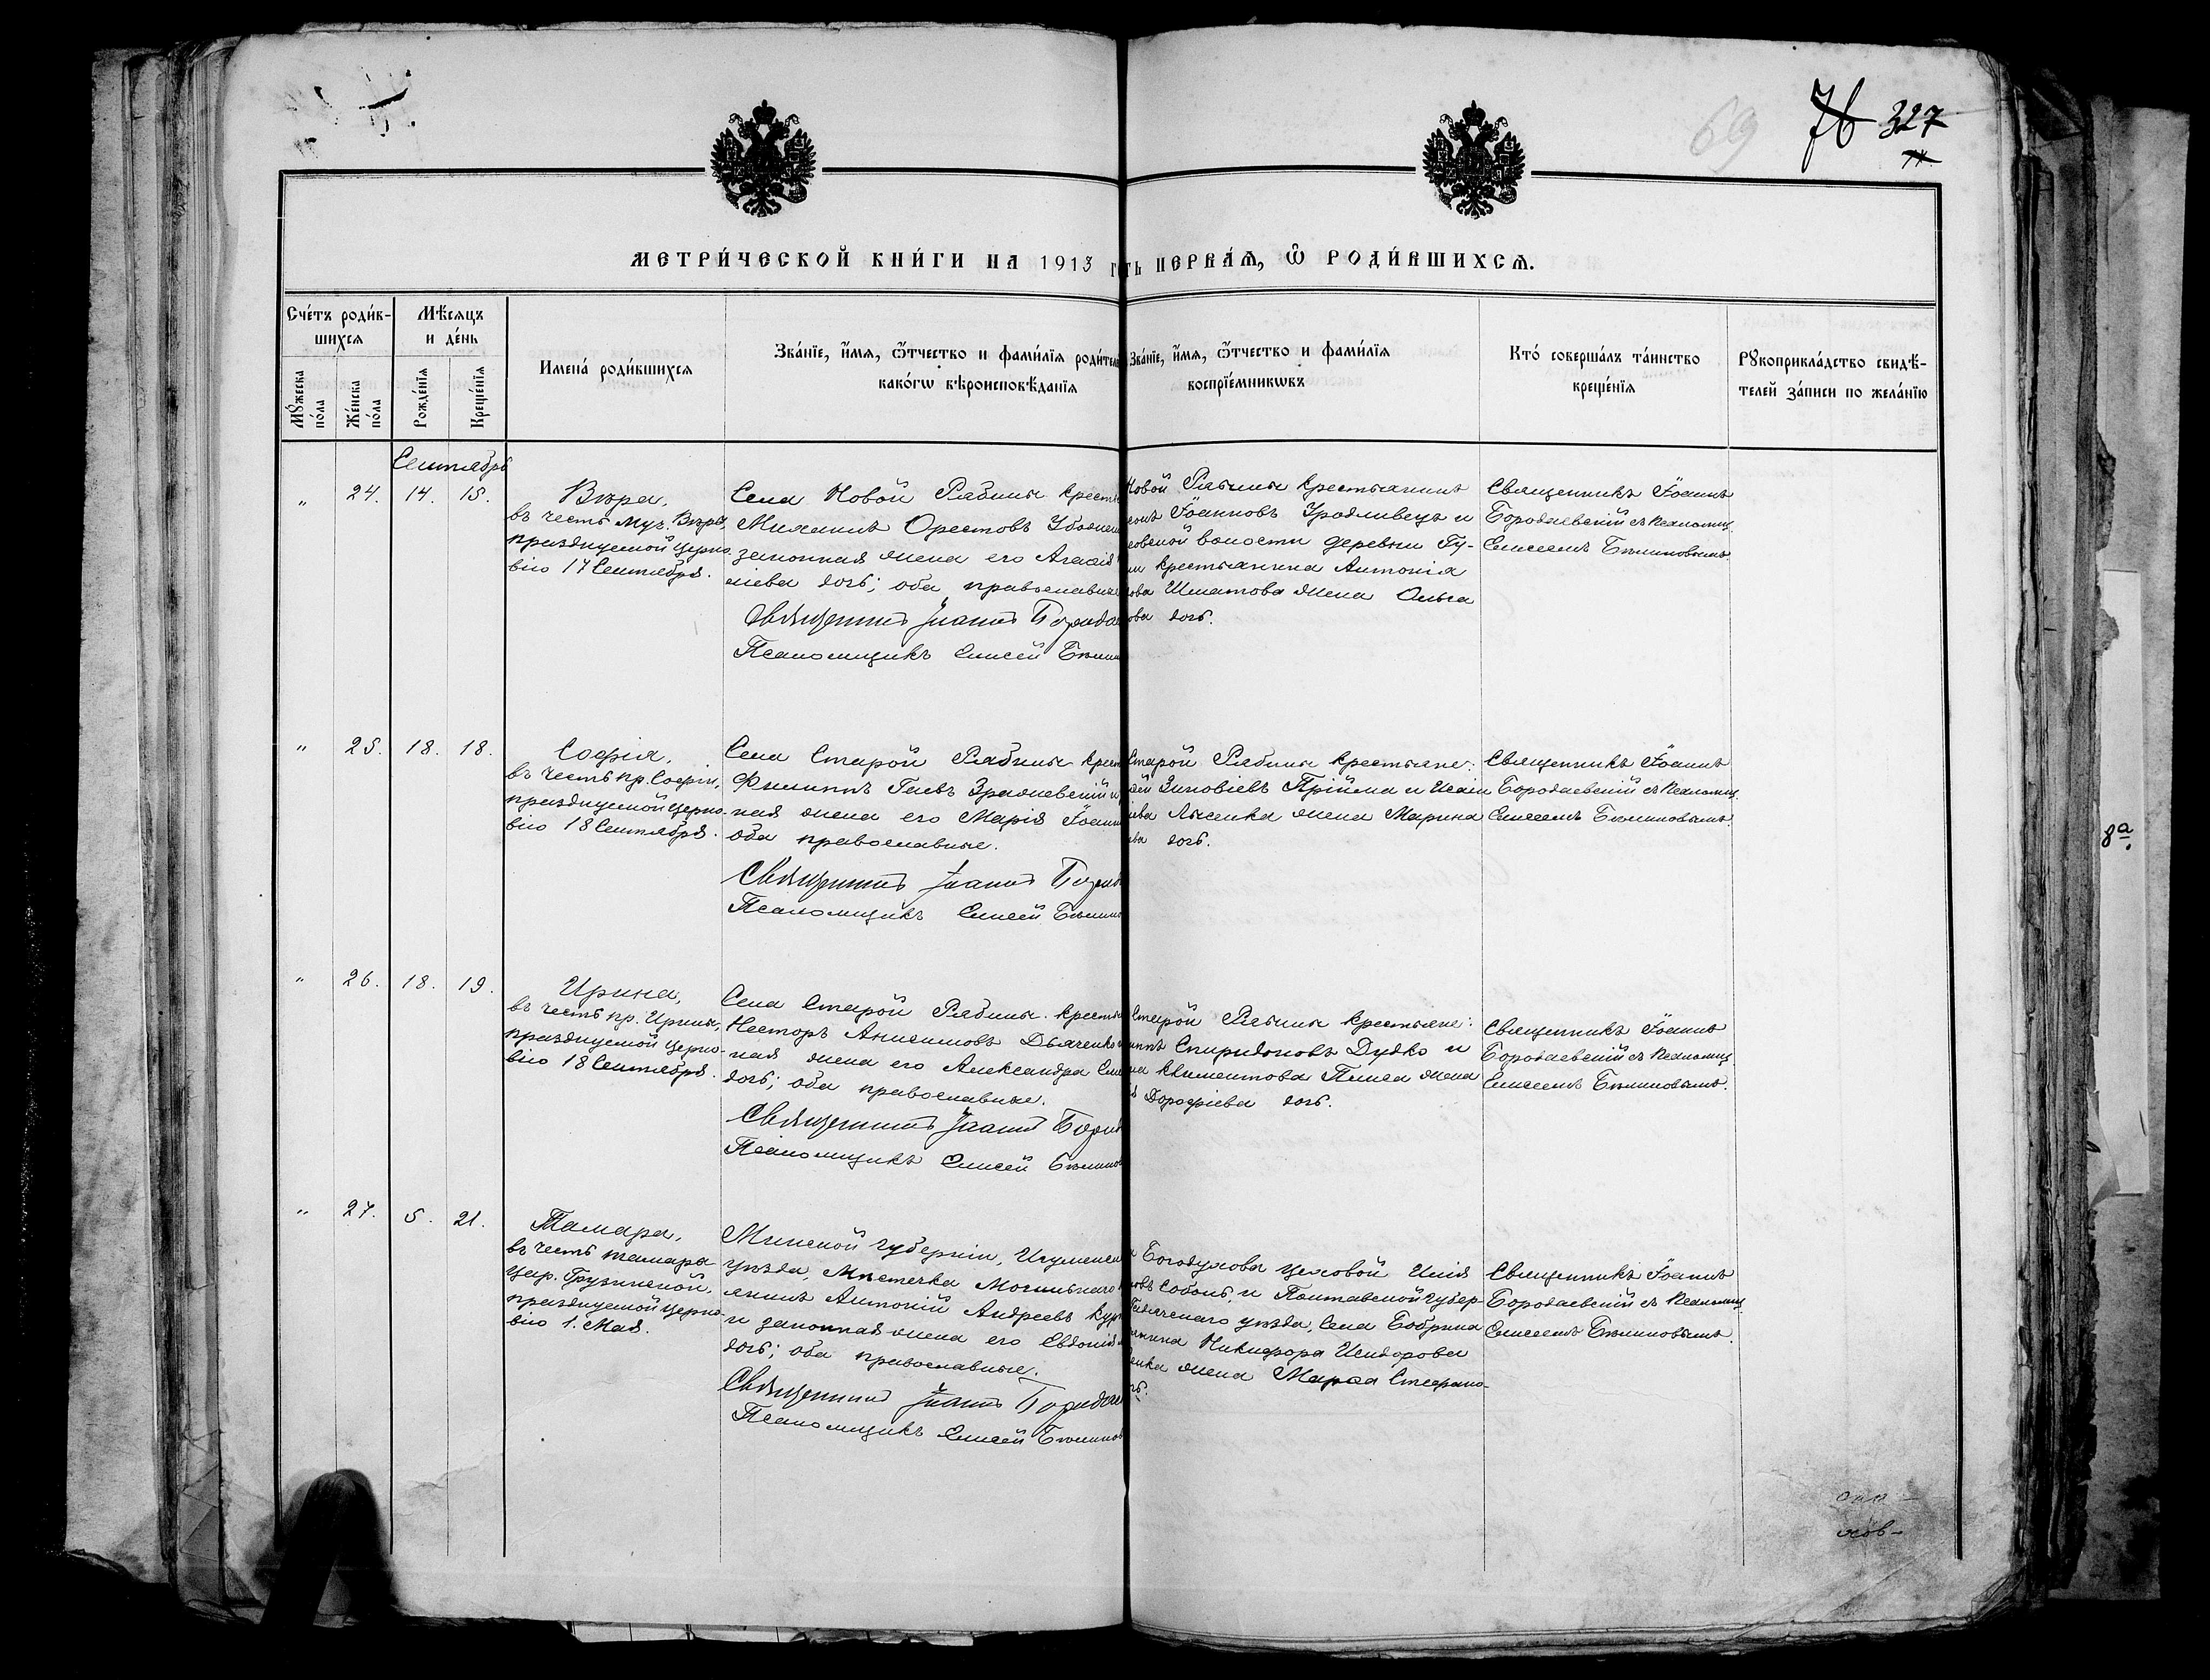 69 76 327
МЕТРИ́ЧЕСКОЙ КНИ́ГИ НА 1913 г
ть ПЕРВА́Я, Ѡ РОДИ́ВШИХСЯ.
Сче́тъ роди́в-
шихся
Мѣ́сяцъ
и де́нь
Мꙋ́жеска
по́ла
Же́нска
по́ла
Рожде́нїя
Креще́нїя
Имена́ роди́вшихся
Зва́нїе, и҆́мя, ѻ҆́тчество и фами́лїя роди́тел
како́гѡ вѣроисповѣ́данїя
Зва́нїе, и҆́мя, ѻ҆́тчество и фами́лїя
воспрїе́мникѡвъ
Кто́ соверша́лъ та́инство
креще́нїя
Рꙋкоприкла́дство свидѣ́-
телей за́писи по жела́нїю
Сентябрь
" 24. 14. 15.
Вѣра,
въ честь муч. Вѣры,
празднуемой церко-
вію 17 Сентября.
Села Новой Рябины крестья
Михаилъ Орестовъ
законная жена его
іева дочь; оба православные
Священникъ Іоаннъ Бородае
Псаломщикъ Елисей Бѣлин
Новой Рябины крестьянинъ
Іоанновъ Уродливецъ и
овской волости деревни Гу-
крестьянина Антонія
ова Игнатова жена Ольга
ова дочь.
Священникъ Іоаннъ
Бородаевскій съ псаломщ.
Елисеемъ Бѣлиновымъ.
" 25. 18. 18.
Софія,
въ честь пр. Софіи,
празднуемой церко-
вію 18 Сентября.
Села Старой Рябины крест
Филиппъ Гаевъ и
ная жена его Марія Іоанн
оба православные.
Священникъ Іоаннъ Бород
Псаломщикъ Елисей Бѣлин
Старой Рябины крестьяне:
Зиновіевъ Прійма и Исаіи
іева Лысенка жена Марина
ева дочь.
Священникъ Іоаннъ
Бородаевскій съ псаломщ.
Елисеемъ Бѣлиновымъ.
" 26. 18. 19.
Ирина,
въ честь пр. Ирины,
празднуемой церко-
вію 18 Сентября.
Села Старой Рябины крестья
Несторъ Анисимовъ Дьяченко
ная жена его Александра
дочь; оба православные.
Священникъ Іоаннъ Бород
Псаломщикъ Елисей Бѣлинов
Старой Рябины крестьяне:
иппъ Спиридоновъ Дудко и
на Климентова жена
Дорофіева дочь.
Священникъ Іоаннъ
Бородаевскій съ псаломщ.
Елисеемъ Бѣлиновымъ.
" 27. 5. 21.
Тамара,
въ честь Тамары
цар. Грузинской,
празднуемой церко-
вію 1. Мая.
Минской губерніи, Игуменск
уѣзда, Мѣстечка Могильнаго
янинъ Антоній Андреевъ
и законная жена его Евдокія
дочь; оба православные.
Священникъ Іоаннъ Бородае
Псаломщикъ Елисей Бѣлинов
Богодухова цеховой Илія
овъ Соболь, и Полтавской губер-
Гадячскаго уѣзда, села Бобрика
янина Никифора Исидорова
енка жена Марфа Стефано-
чь.
Священникъ Іоаннъ
Бородаевскій съ псаломщ.
Елисеемъ Бѣлиновымъ.
8а.